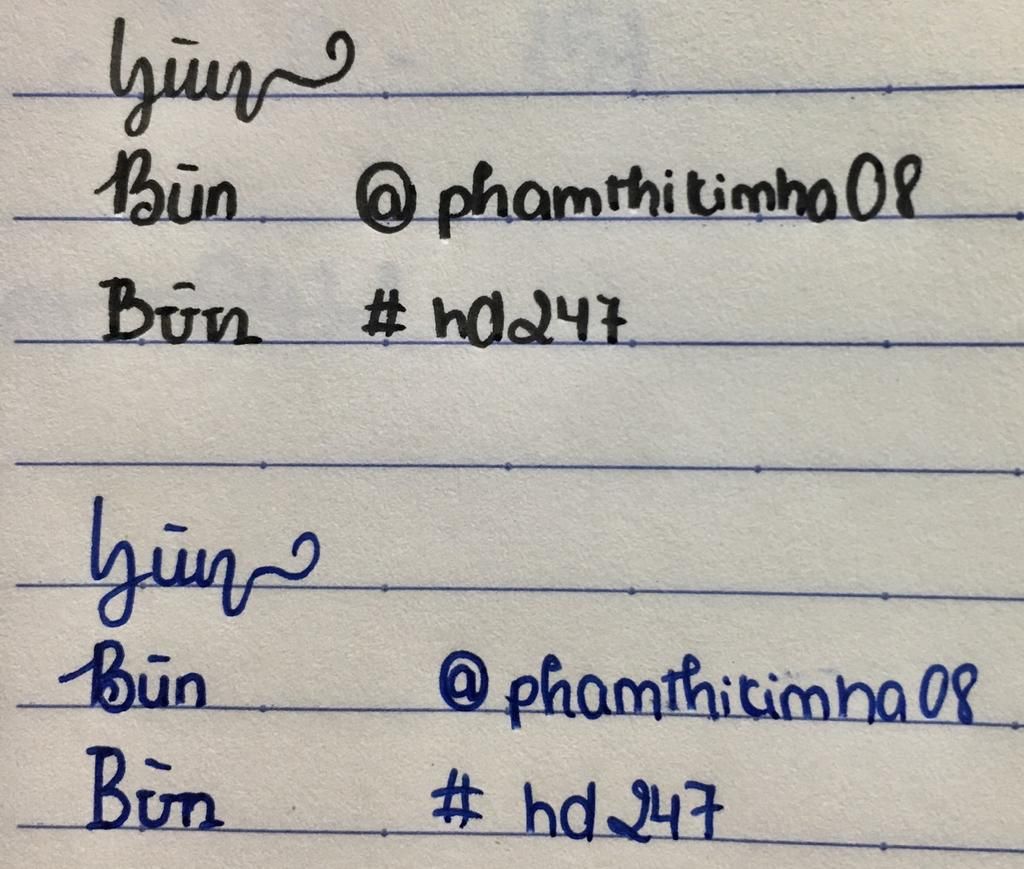 Būn
Būn @phamthikimha08
Būn # hd247
Būn
Būn @phamthikimha08
Bùn # hd247